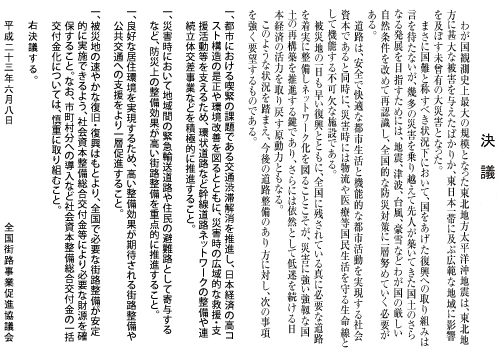 決議
わが国観測史上最大の規模となった東北地方太平洋沖地震は、東北地
方に甚大な被害を与えたばかりか、東日本一帯に及ぶ広範な地域に影響
を及ぼす未曾有の大災害となった。
まさに国難と称すべき状況下において、国をあげた復興への取り組みは
言を待たないが、幾多の災害を乗り越えて先人が築いてきた国土のさら
なる発展を目指すためには、地震、津波、台風、豪雪などわが国の厳しい
自然条件を改めて再認識し、全国的な防災対策に一層努めていく必要が
ある。
道路は、安全で快適な都市生活と機能的な都市活動を実現する社会
資本であると同時に、災害時には物流や医療等国民生活を守る生命線と
して機能する不可欠な施設である。
被災地の一日も早い復興とともに、全国に残されている真に必要な道路
を着実に整備しネットワーク化を図ることこそが、災害に強い強靱な国
土の再構築を推進する鍵であり、さらには依然として低迷を続ける日
本経済の活力を取り戻す原動力ともなる。
このような状況を踏まえ、今後の道路整備のあり方に対し、次の事項
を強く要望するものである。
一、都市における喫緊の課題である交通渋滞解消を推進し、日本経済の高コ
スト構造の是正や環境改善を図るとともに、災害時の広域的な救援・支
援活動等を支えるため、環状道路など幹線道路ネットワークの整備や連
続立体交差事業などを積極的に推進すること。
一、災害時において地域間の緊急輸送道路や住民の避難路として寄与する
など、防災上の整備効果が高い街路整備を重点的に推進すること。
一、良好な居住環境を実現するため、高い整備効果が期待される街路整備や
公共交通への支援をより一層促進すること。
一、被災地の速やかな復旧・復興はもとより、全国で必要な街路整備が安定
的に実施できるよう、社会資本整備総合交付金等により必要な財源を確
保すること。なお、市町村分への導入など社会資本整備総合交付金の一括
交付金化については、慎重に取り組むこと。
右決議する。
平成二十三年六月八日
全国街路事業促進協議会